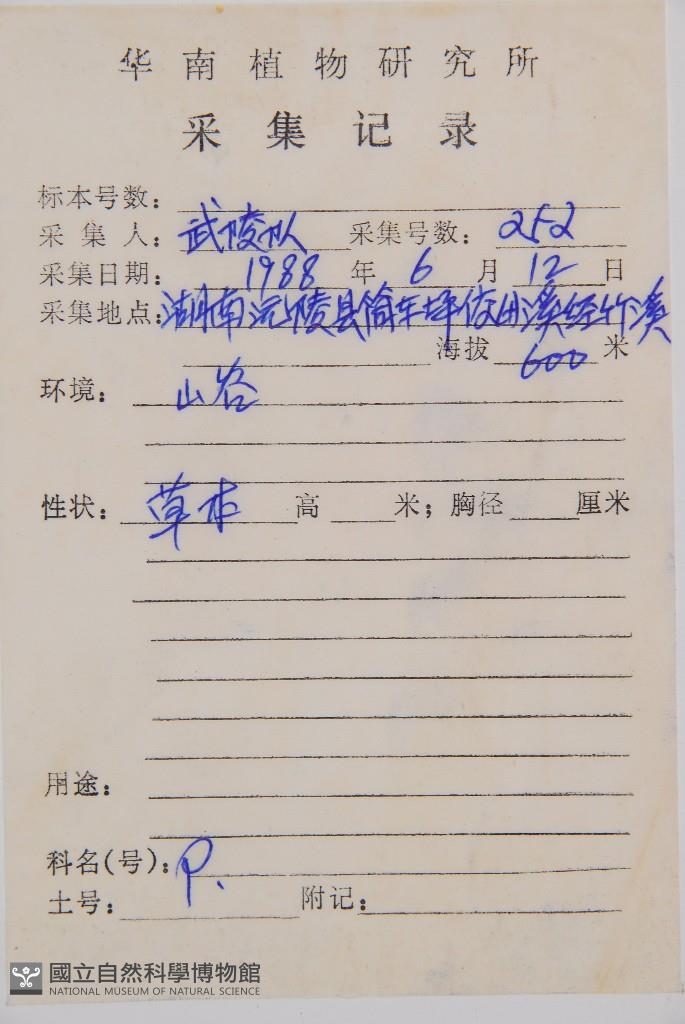 华南植物研究所
采集记录
标本号数：
采集人：武陵队 采集号数：252
采集日期：1988年6月12日
采集地点：湖南沅陵县筒车坪 溪经竹溪
海拔600米
环境：山谷
性状：草本 高 米；胸径 厘米
用途：
科名(号)：P.
土号： 附记：
國立自然科學博物館
NATIONAL MUSEUM OF NATURAL SCIENCE